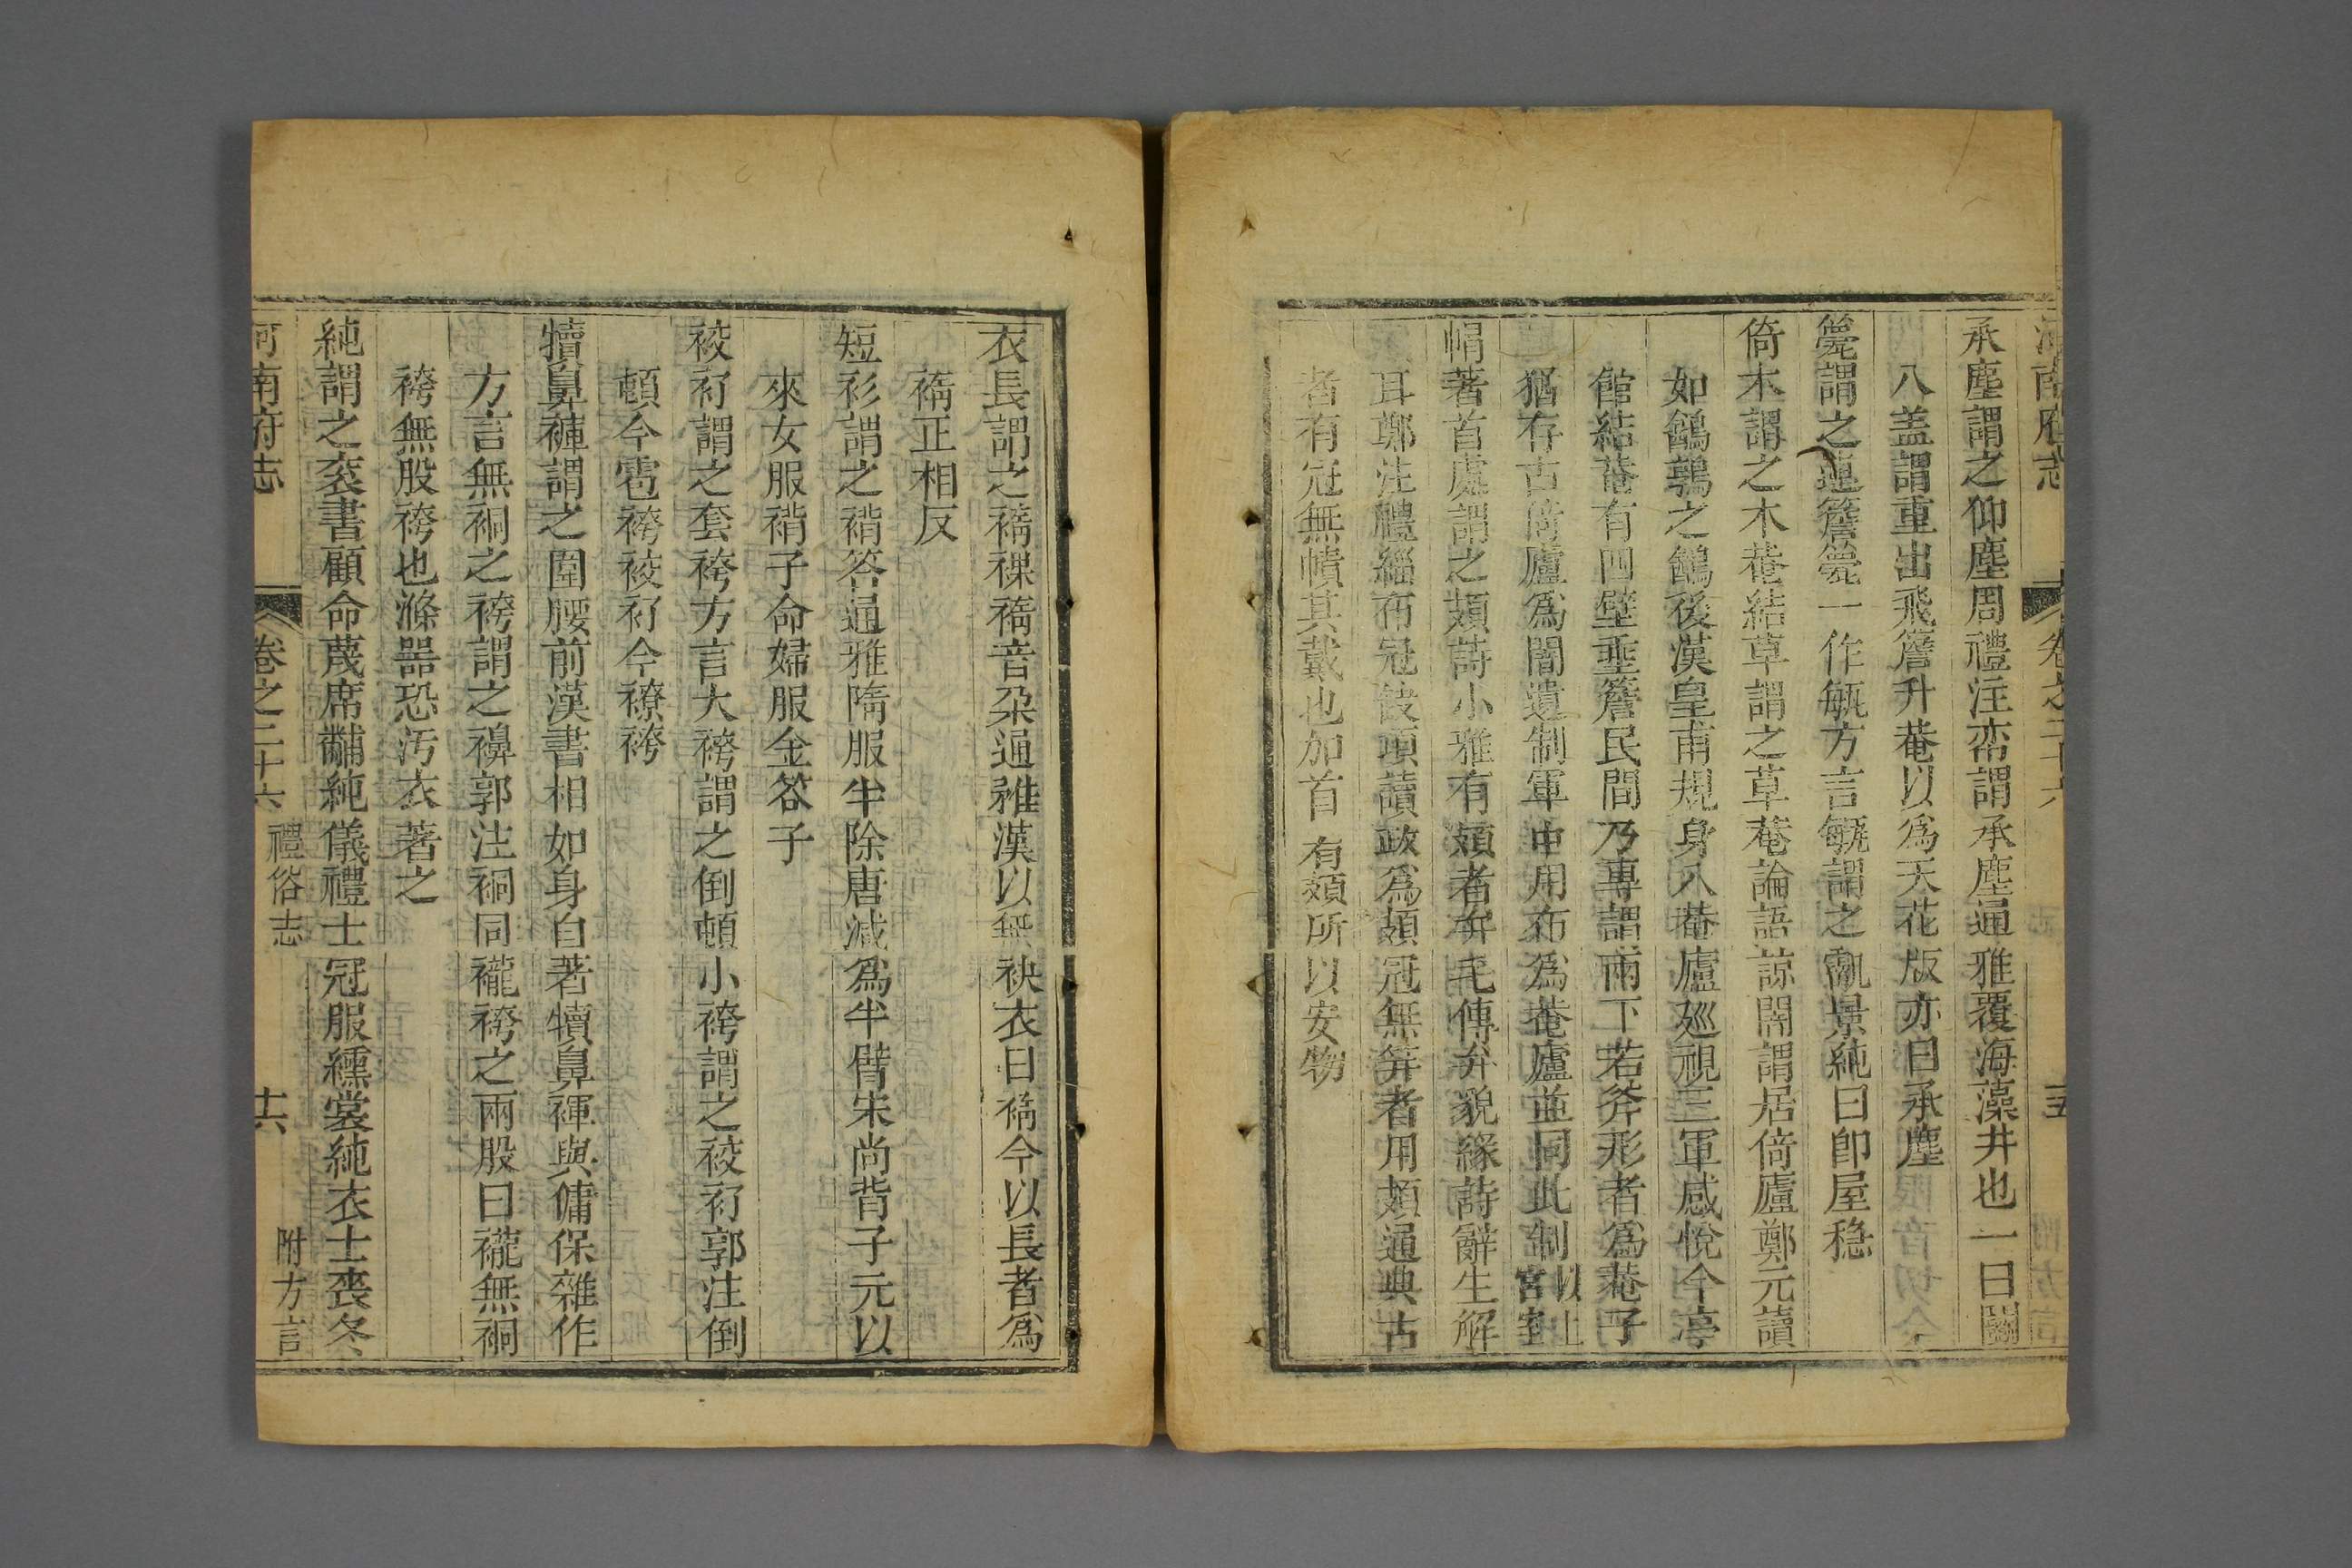 河南府志 卷之二十六 五
承塵謂之仰塵周禮注帟謂承塵通雅覆海藻井也一曰鬬
八盖謂重出飛簷升菴以爲天花版亦曰承塵
甍謂之連簷甍一作㼹方言㼹謂之甋景純曰卽屋穏
倚木謂之木菴結草謂之草菴論語諒闇謂居倚廬鄭元讀
如鶴鶉之鶴後漢皇甫規身入菴廬廵視三軍感悅今亭
館結菴有四壁垂簷民間乃專謂兩下若斧形者爲菴子
猶存古倚廬爲闇遺制軍中用布爲菴廬並同此制以上宮室
帽著首處謂之頍詩小雅有頍者弁毛傳弁貌緣詩辭生解
耳鄭注禮緇布冠缺項讀政爲頍冠無笄者用頍通典古
者有冠無幘其戴也加首 有頍所以安物
衣長謂之䙃祼䙃音朶通雅漢以無袂衣曰䙃今以長者爲
䙃正相反
短衫謂之䙅答通雅隋服半除唐減爲半臂宋尚背子元以
來女服䙅子命婦服金答子
䘨衧謂之套袴方言大袴謂之倒頓小袴謂之䘨衧郭注倒
頓今雹袴䘨衧今𧝜袴
犢鼻褲謂之圍腰前漢書相如身自著犢鼻褌與傭保雜作
方言無裥之袴謂之襣郭注裥同襱袴之兩股曰襱無裥
袴無股袴也滌器恐汚衣著之
純謂之衮書顧命蔑席黼純儀禮士冠服纁裳純衣士喪冬
河南府志 卷之二十六 禮俗志 十六 附方言